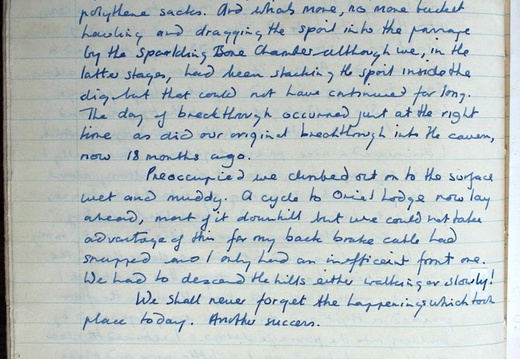 polythene sacks. And whats more, no more bucket
hauling and dragging the spoil into the passage
by the Sparkling Bone Chamber although we, in the
latter stages, had been stacking the spoil inside the
dig but that could not have continued for long.
The day of breakthrough occurred just at the right
time as did our original breakthrough into the cavern,
now 18 months ago.
Preoccupied we climbed out on to the surface
wet and muddy. A cycle to Oriel Lodge now lay
ahead, most of it downhill but we could not take
advantage of this for my back brake cable had
snapped and I only had an inefficient front one.
We had to descend the hills either walking or slowly!
We shall never forget the happenings which took
place today. Another success.